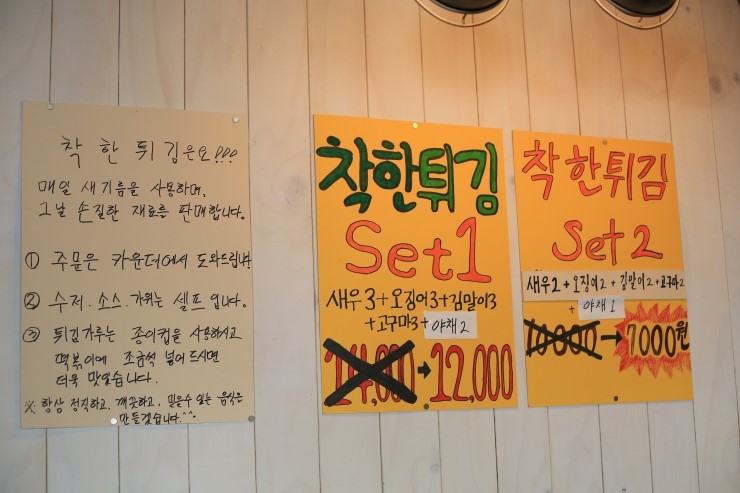 착한튀김은요!!!
매일 새기름을 사용하며,
그날 손질한 재료를 판매합니다.
① 주문은 카운터에서 도와드립니다
② 수저.소스.가위는 셀프입니다.
③ 튀김가루는 종이컵을 사용하시고
떡볶이에 조금씩 넣어드시면
더욱 맛있습니다.
※ 항상 정직하고, 깨끗하고, 믿을수 있는 음식을
만들겠습니다.^^
착한튀김
Set1
새우3+오징어3+김말이3
+고구마3+야채2
14,000→12,000
착한튀김
Set 2
새우2+오징어2+김말이2+고구마2
+야채1
10000→7000원